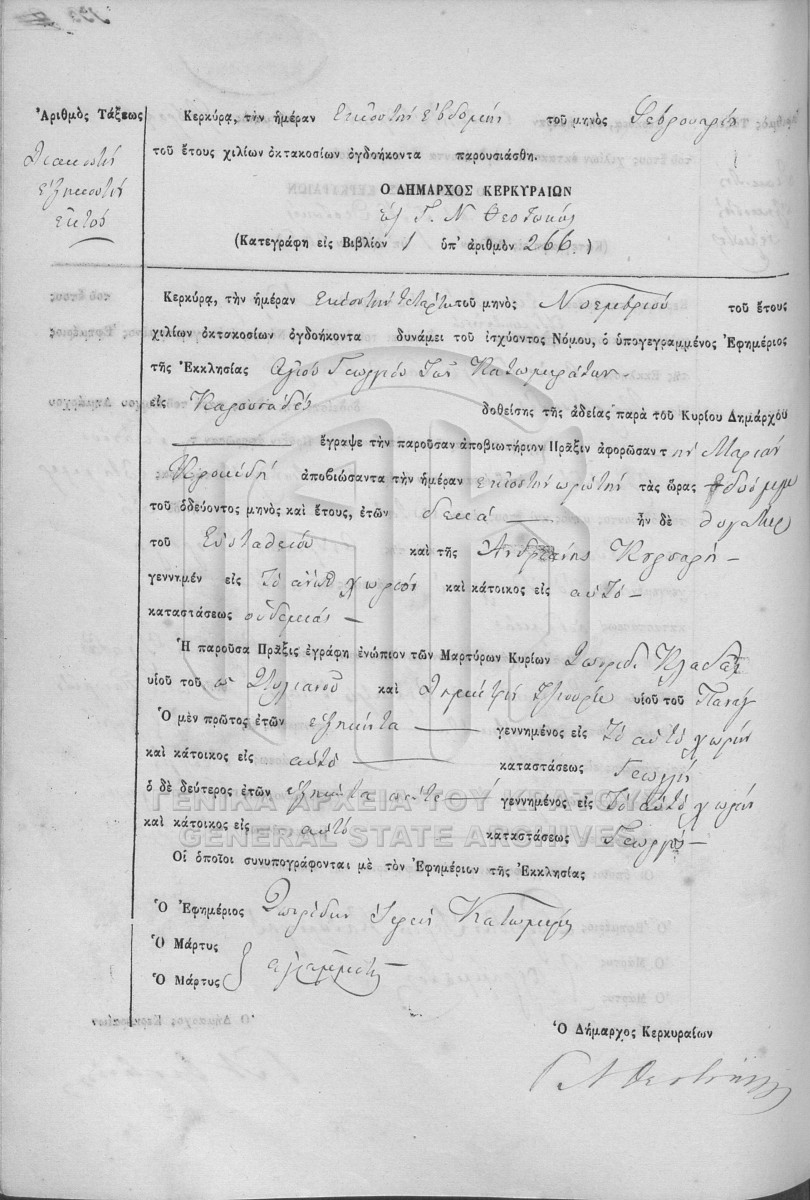 Ἀριθμὸς Τάξεως
Διακοστὴ
ἑξηκοστὴ
ἕκτος
Κερκύρᾳ, τὴν ἡμέραν εἰκοστὴν ἑβδόμην τοῦ μηνὸς Φεβρουαρίου
τοῦ ἔτους χιλίων ὀκτακοσίων ὀγδοήκοντα παρουσιάσθη.
Ο ΔΗΜΑΡΧΟΣ ΚΕΡΚΥΡΑΙΩΝ
Γ. Ν Θεοτόκης
(Κατεγράφη εἰς Βιβλίον 1 ὑπ' ἀριθμὸν 266.)
Κερκύρᾳ, τὴν ἡμέραν εἰκοστὴν τετάρτην τοῦ μηνὸς Νοεμβρίου τοῦ ἔτους
χιλίων ὀκτακοσίων ὀγδοήκοντα δυνάμει τοῦ ἰσχύοντος Νόμου, ὁ ὑπογεγραμμένος Ἐφημέριος
τῆς Ἐκκλησίας Αγίου Γεωργίου των Κατωμεράτων
εἰς Καρουσάδες δοθείσης τῆς ἀδείας παρὰ τοῦ Κυρίου Δημάρχου
ἔγραψε τὴν παροῦσαν ἀποβιωτήριον Πρᾶξιν ἀφορῶσαν τὴν Μαρίαν
Κροκίδη ἀποβιώσαντα τὴν ἡμέραν εικοστην πρωτην τὰς ὥρας δυο μμ
τοῦ ὁδεύοντος μηνὸς καὶ ἔτους, ἐτῶν δεκα ἦν δὲ θυγατηρ
τοῦ Ευσταθείου καὶ τῆς Ανδριάνης
γεννημέν εἰς το ανωθ χωρίον καὶ κάτοικος εἰς αυτο
καταστάσεως ουδεμιας
Ἡ παροῦσα Πρᾶξις ἐγράφη ἐνώπιον τῶν Μαρτύρων Κυρίων Σπυριδ
υἱοῦ τοῦ π Στυλιανοῦ καὶ Δημητρίου υἱοῦ τοῦ Παναγ
Ὁ μὲν πρῶτος ἐτῶν εξηκοντα γεννημένος εἰς το αυτο χωρίον
καὶ κάτοικος εἰς αυτο καταστάσεως Γεωργος
ὁ δὲ δεύτερος ἐτῶν εξηκοντα πεντε γεννημένος εἰς το αυτο χωρίον
καὶ κάτοικος εἰς αυτο καταστάσεως Γεωργός
Οἱ ὁποῖοι συνυπογράφονται μὲ τὸν Ἐφημέριον τῆς Ἐκκλησίας
Ὁ Ἐφημέριος Σπυρίδων Ιερευς Κατωμέρης
Ὁ Μάρτυς
Ὁ Μάρτυς αγραμματοι
Ὁ Δήμαρχος Κερκυραίων
Γ Ν Θεοτόκης
ΓΕΝΙΚΑ ΑΡΧΕΙΑ ΤΟΥ ΚΡΑΤΟΥΣ
GENERAL STATE ARCHIVES